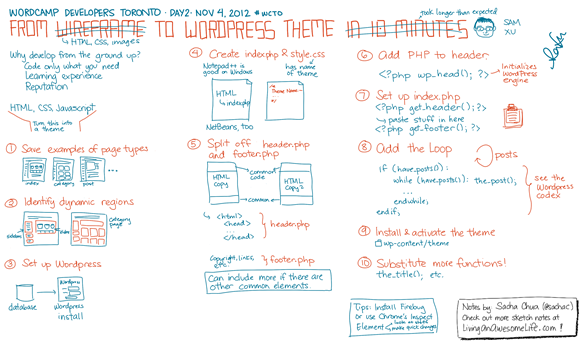 WORDCAMP DEVELOPERS TORONTO · DAY 2 · NOV 4, 2012 #WCTO
took longer than expected
FROM WIREFRAME TO WORDPRESS THEME IN 10 MINUTES
SAM XU
HTML, CSS, images
Why develop from the ground up?
Code only what you need
Learning experience
Reputation
HTML, CSS, Javascript
Turn this into
a theme
1 Save examples of page types
index
category
post
...
2 Identify dynamic regions
sidebar
index
category
page
3 Set up Wordpress
Wordpress
database
Wordpress
install
4 Create index.php & style.css
Notepad++ is
good on Windows
has
name
of theme
HTML
index.php
/*
Theme Name
*/
NetBeans, too
5 Split off header.php
and footer.php
HTML
copy
common
code
HTML
copy 2
common
<html>
<head>
...
</head>
header.php
Copyright, lines,
etc.
footer.php
Can include more if there are
other common elements.
6 Add PHP to header
<?php wp_head(); ?>
Initializes
WordPress
engine
7 Set up index.php
<?php get_header(); ?>
paste stuff in here
<?php get_footer(); ?>
8 Add the Loop
posts
if (have_posts()):
while (have_posts()): the_post();
...
endwhile;
endif;
see the
Wordpress
codex
9 Install & activate the theme
wp-content/theme
10 Substitute more functions!
the_title(); etc.
Tips: Install Firebug
or use Chrome's Inspect
Element
look at code
make quick changes
Notes by Sacha Chua (@sachac)
Check out more sketch notes at
LivingAnAwesomeLife.com!